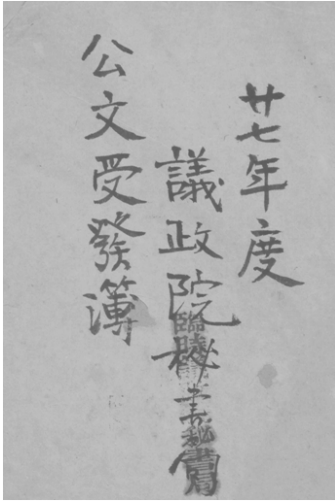 廿七年度
議政院秘書
公文受發簿